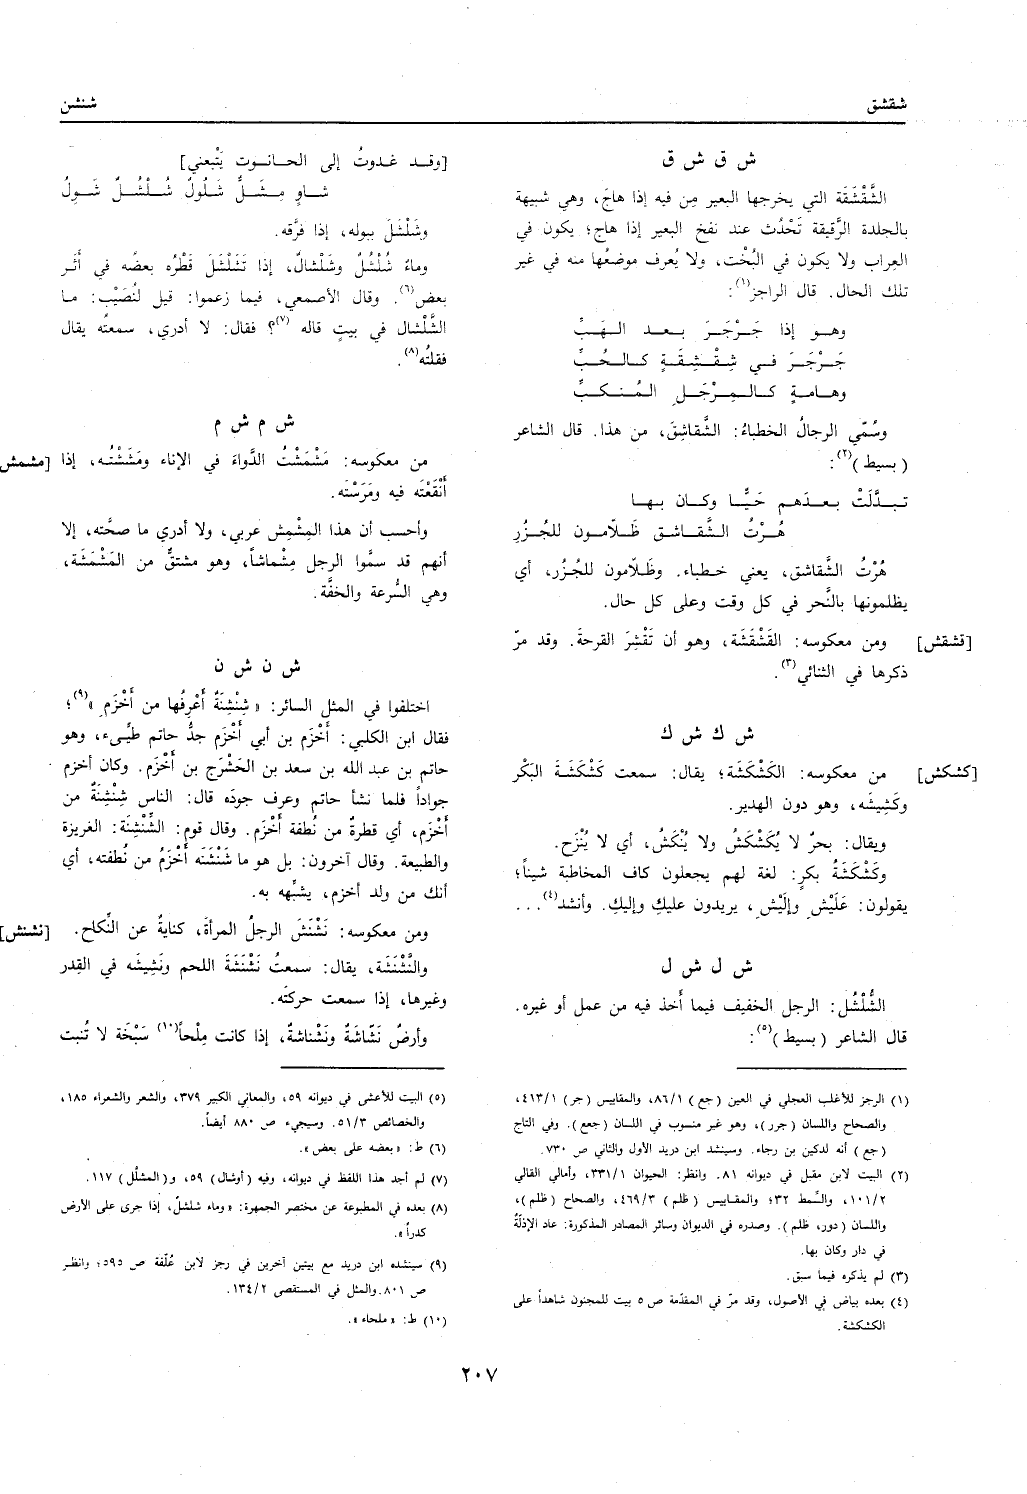 شقشق
شنشن
ش ق ش ق
الشَّقْشَقَة التي يخرجها البعير مِن فيه إذا هاجَ، وهي شبيهة
بالجلدة الرَّقيقة تَحْدُث عند نفخ البعير إذا هاج؛ يكون في
العِراب ولا يكون في البُخْت، ولا يُعرف موضعُها منه في غير
تلك الحال. قال الراجز(١):
وهــو إذا جَــرْجَــرَ بــعــد الــهَــبِّ
جَــرْجَــرَ فــي شِــقْــشِــقَــةٍ كــالــحُــبِّ
وهــامــةٍ كــالــمِــرْجَــلِ الــمُــنــكــبِّ
وسُمّي الرجالُ الخطباءُ: الشَّقاشِقَ، من هذا. قال الشاعر
(بسيط)(٢):
تــبــدَّلَتْ بعــدَهــم حَيًّــا وكــان بــهــا
هُــرْتُ الشَّقــاشــق ظَــلّامــون للجُــزُرِ
هُرْتُ الشَّقاشق، يعني خطباء. وظَلّامون للجُزُر، أي
يظلمونها بالنَّحر في كل وقت وعلى كل حال.
[قشقش] ومن معكوسه: القَشْقَشَة، وهو أن تَقْشِرَ القرحةَ. وقد مرّ
ذكرها في الثنائي(٣).
ش ك ش ك
[كشكش] من معكوسه: الكَشْكَشَة؛ يقال: سمعت كَشْكَشَةَ البَكْر
وكَشِيشَه، وهو دون الهدير.
ويقال: بحرٌ لا يُكَشْكَشُ ولا يُنْكَشُ، أي لا يُنْزَح.
وكَشْكَشَةُ بكرٍ: لغة لهم يجعلون كاف المخاطبة شيناً؛
يقولون: عَلَيْشِ وإلَيْشِ، يريدون عليكِ وإليكِ. وأنشد(٤)...
ش ل ش ل
الشُّلْشُل: الرجل الخفيف فيما أَخذ فيه من عمل أو غيره.
قال الشاعر (بسيط)(٥):
(١) الرجز للأغلب العجلي في العين (جع) ٨٦/١، والمقاييس (جر) ٤١٣/١،
والصحاح واللسان (جرر)، وهو غير منسوب في اللسان (جعع). وفي التاج
(جع) أنه لدكين بن رجاء. وسينشد ابن دريد الأول والثاني ص ٧٣٠.
(٢) البيت لابن مقبل في ديوانه ٨١. وانظر: الحيوان ٣٣١/١، وأمالي القالي
١٠١/٢، والسِّمط ٣٢؛ والمقاييس (ظلم) ٤٦٩/٣، والصحاح (ظلم)،
واللسان (دور، ظلم). وصدره في الديوان وسائر المصادر المذكورة: عاد الإذلّةُ
في دار وكان بها.
(٣) لم يذكره فيما سبق.
(٤) بعده بياض في الأصول، وقد مرّ في المقدّمة ص ٥ بيت للمجنون شاهداً على
الكشكشة.
[وقــد غــدوتُ إلى الحــانــوت يَتْبعني]
شــاوٍ مِــشَــلٌّ شَــلُولٌ شُــلْشُــلٌ شَــوِلُ
وشَلْشَلَ ببوله، إذا فرَّقه.
وماءٌ شُلْشُلٌ وشَلْشالٌ، إذا تَشَلْشَلَ قَطْرُه بعضُه في أثَر
بعض(٦). وقال الأصمعي، فيما زعموا: قيل لنُصَيْب: ما
الشَّلْشال في بيتٍ قاله(٧)؟ فقال: لا أدري، سمعتُه يقال
فقلتُه(٨).
ش م ش م
من معكوسه: مَشْمَشْتُ الدَّواءَ في الإناء ومَشَشْتُه، إذا [مشمش
أَنْقَعْتَه فيه ومَرَسْتَه.
وأحسب أن هذا المِشْمِش عربي، ولا أدري ما صحَّته، إلا
أنهم قد سمَّوا الرجل مِشْماشاً، وهو مشتقٌّ من المَشْمَشَة،
وهي السُّرعة والخفَّة.
ش ن ش ن
اختلفوا في المثل السائر: «شِنْشِنَةٌ أَعْرِفُها من أَخْزَمِ»(٩)؛
فقال ابن الكلبي: أَخْزَم بن أبي أَخْزَم جدُّ حاتم طيِّىء، وهو
حاتم بن عبد الله بن سعد بن الحَشْرَج بن أَخْزَم. وكان أخزم
جواداً فلما نشأ حاتم وعرف جودَه قال: الناس شِنْشِنَةٌ من
أَخْزَم، أي قطرةٌ من نُطفة أَخْزَم. وقال قوم: الشِّنْشِنَة: الغريزة
والطبيعة. وقال آخرون: بل هو ما شَنْشَنَه أَخْزَمُ من نُطفته، أي
أنك من ولد أخزم، يشبِّهه به.
ومن معكوسه: نَشْنَشَ الرجلُ المرأةَ، كنايةً عن النِّكاح. [نشنش]
والنَّشْنَشَة، يقال: سمعتُ نَشْنَشَةَ اللحم ونَشِيشَه في القِدر
وغيرها، إذا سمعت حركتَه.
وأرضٌ نَشّاشَةٌ ونَشْناشةٌ، إذا كانت مِلْحاً(١٠) سَبْخَة لا تُنبت
(٥) البيت للأعشى في ديوانه ٥٩، والمعاني الكبير ٣٧٩، والشعر والشعراء ١٨٥،
والخصائص ٥١/٣. وسيجيء ص ٨٨٠ أيضاً.
(٦) ط: «بعضه على بعض».
(٧) لم أجد هذا اللفظ في ديوانه، وفيه (أوشال) ٥٩، و(المشلّل) ١١٧.
(٨) بعده في المطبوعة عن مختصر الجمهرة: «وماء شلشلٌ، إذا جرى على الأرض
كدراً».
(٩) سينشده ابن دريد مع بيتين آخرين في رجز لابن عُلّفة ص ٥٩٥؛ وانظر
ص ٨٠١. والمثل في المستقصى ١٣٤/٢.
(١٠) ط: «ملحاء».
٢٠٧